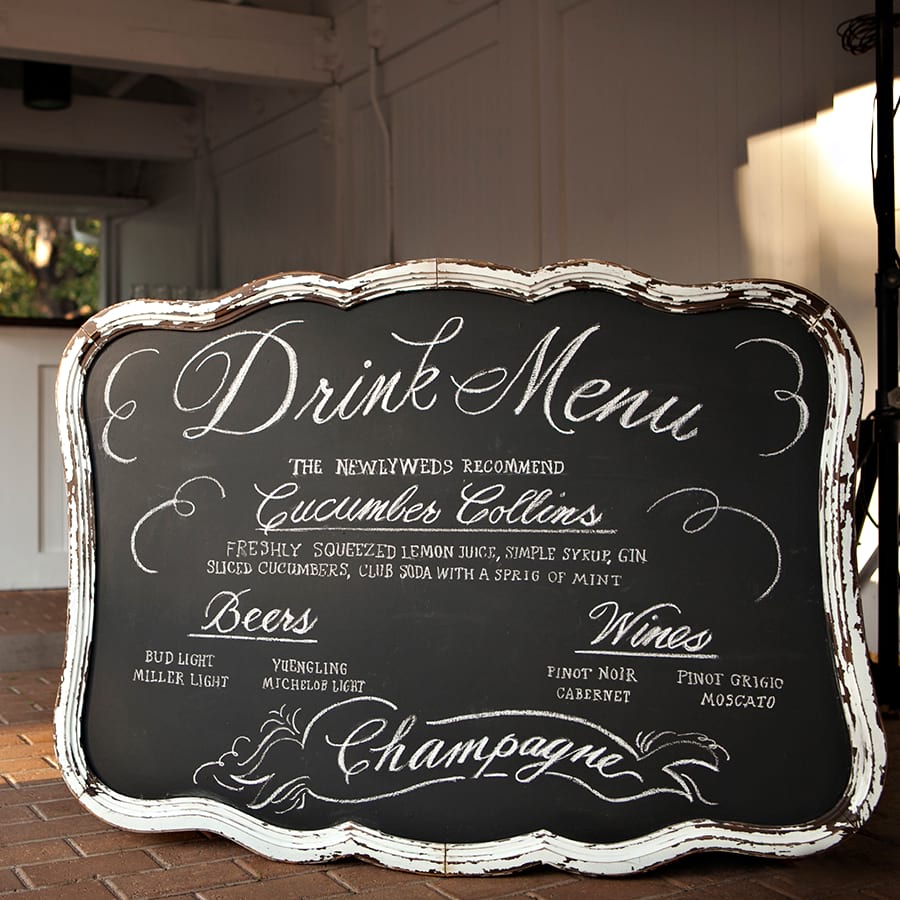 Drink Menu
THE NEWLYWEDS RECOMMEND
Cucumber Collins
FRESHLY SQUEEZED LEMON JUICE, SIMPLE SYRUP, GIN
SLICED CUCUMBERS, CLUB SODA WITH A SPRIG OF MINT
Beers
BUD LIGHT
MILLER LIGHT
YUENGLING
MICHELOB LIGHT
Wines
PINOT NOIR
CABERNET
PINOT GRIGIO
MOSCATO
Champagne